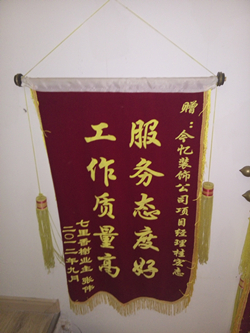 赠：忆装饰公司项目经理桂宏志
服务态度好
工作质量高
七里香榭业主 张伟
二〇一二年九月